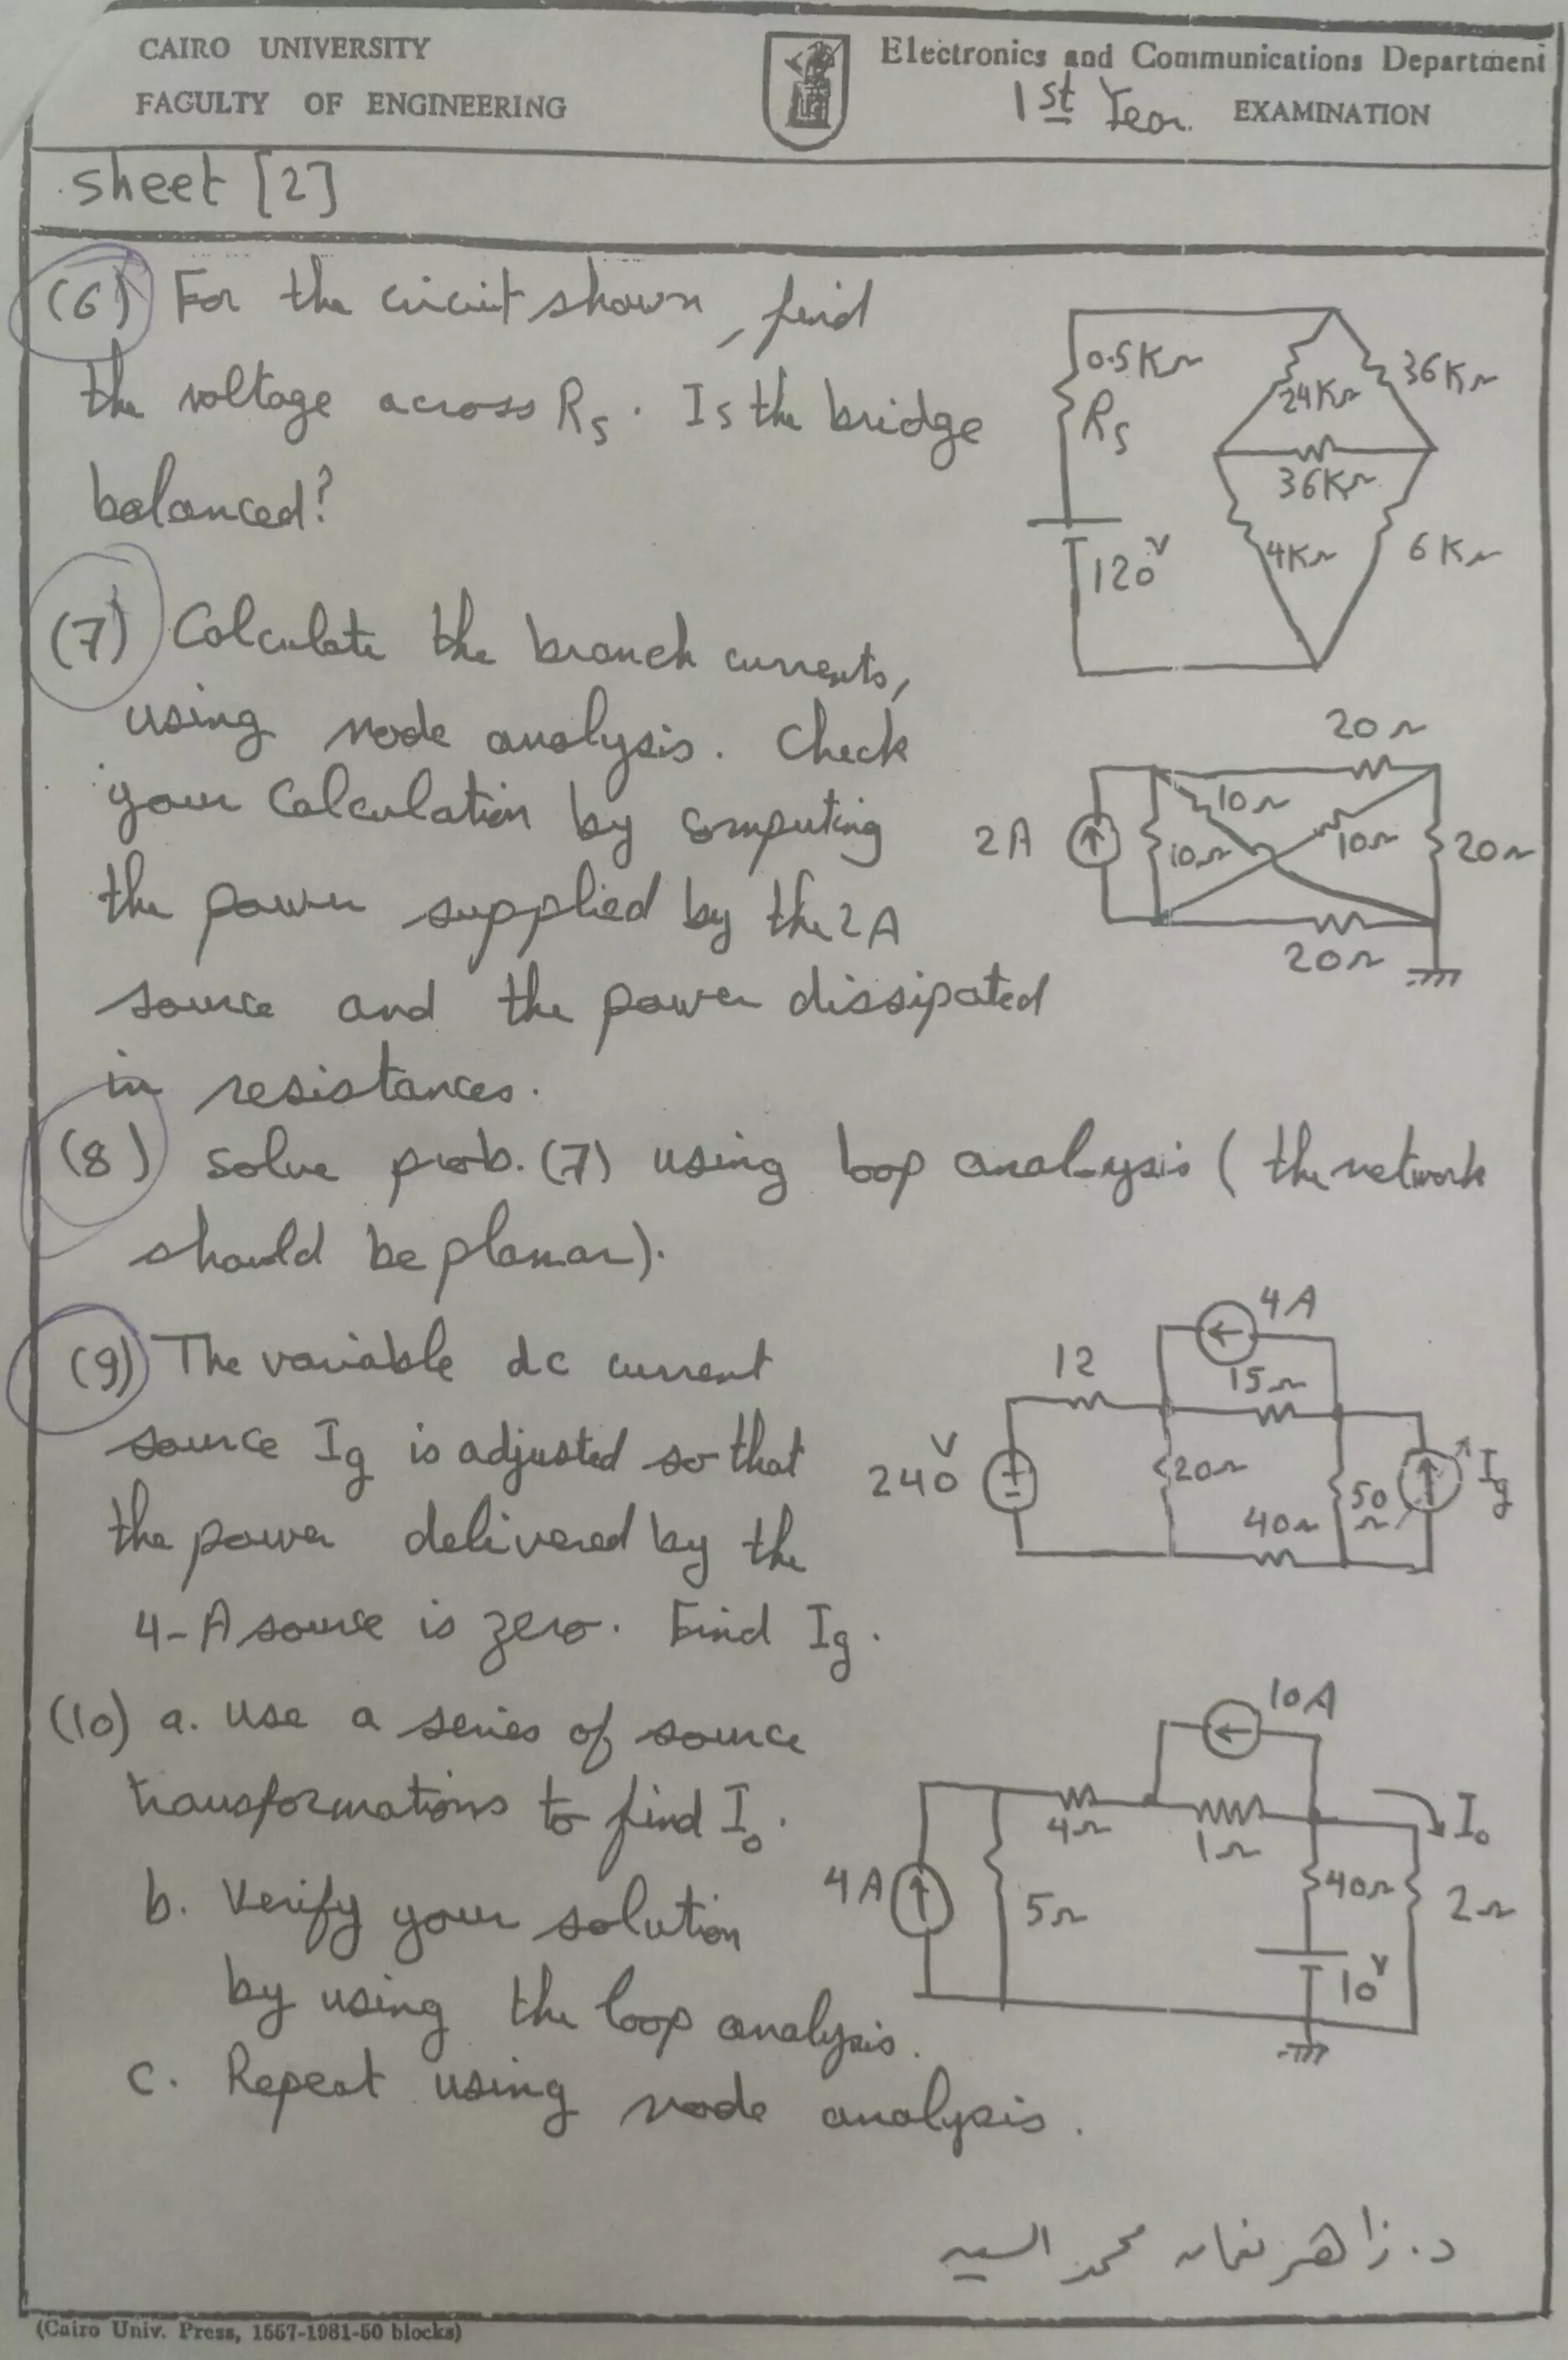 CAIRO UNIVERSITY
FACULTY OF ENGINEERING
Electronics and Communications Department
1st Year. EXAMINATION
sheet [2]
(6) For the circuit shown, find
the voltage across Rs. Is the bridge
balanced?
0.5KΩ
Rs
120V
24KΩ
36KΩ
36KΩ
4KΩ
6KΩ
(7) Calculate the branch currents,
using node analysis. Check
your Calculation by computing
the power supplied by the 2A
source and the power dissipated
in resistances.
20Ω
2A
10Ω
10Ω
10Ω
20Ω
20Ω
(8) solve prob. (7) using loop analysis (the network
should be planar).
(9) The variable dc current
source Ig is adjusted so that
the power delivered by the
4-A source is zero. Find Ig.
4A
12
15Ω
240V
20Ω
40Ω
50Ω
Ig
(10) a. use a series of source
transformations to find Io.
b. Verify your solution
by using the loop analysis.
c. Repeat using node analysis.
10A
4Ω
1Ω
Io
4A
5Ω
40Ω
2Ω
10V
د. زاهر نعمان محمد السيد
(Cairo Univ. Press, 1557-1981-50 blocks)